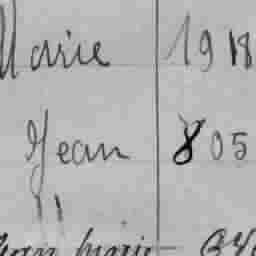 Marie 1918
Jean 805
"
Jean marie